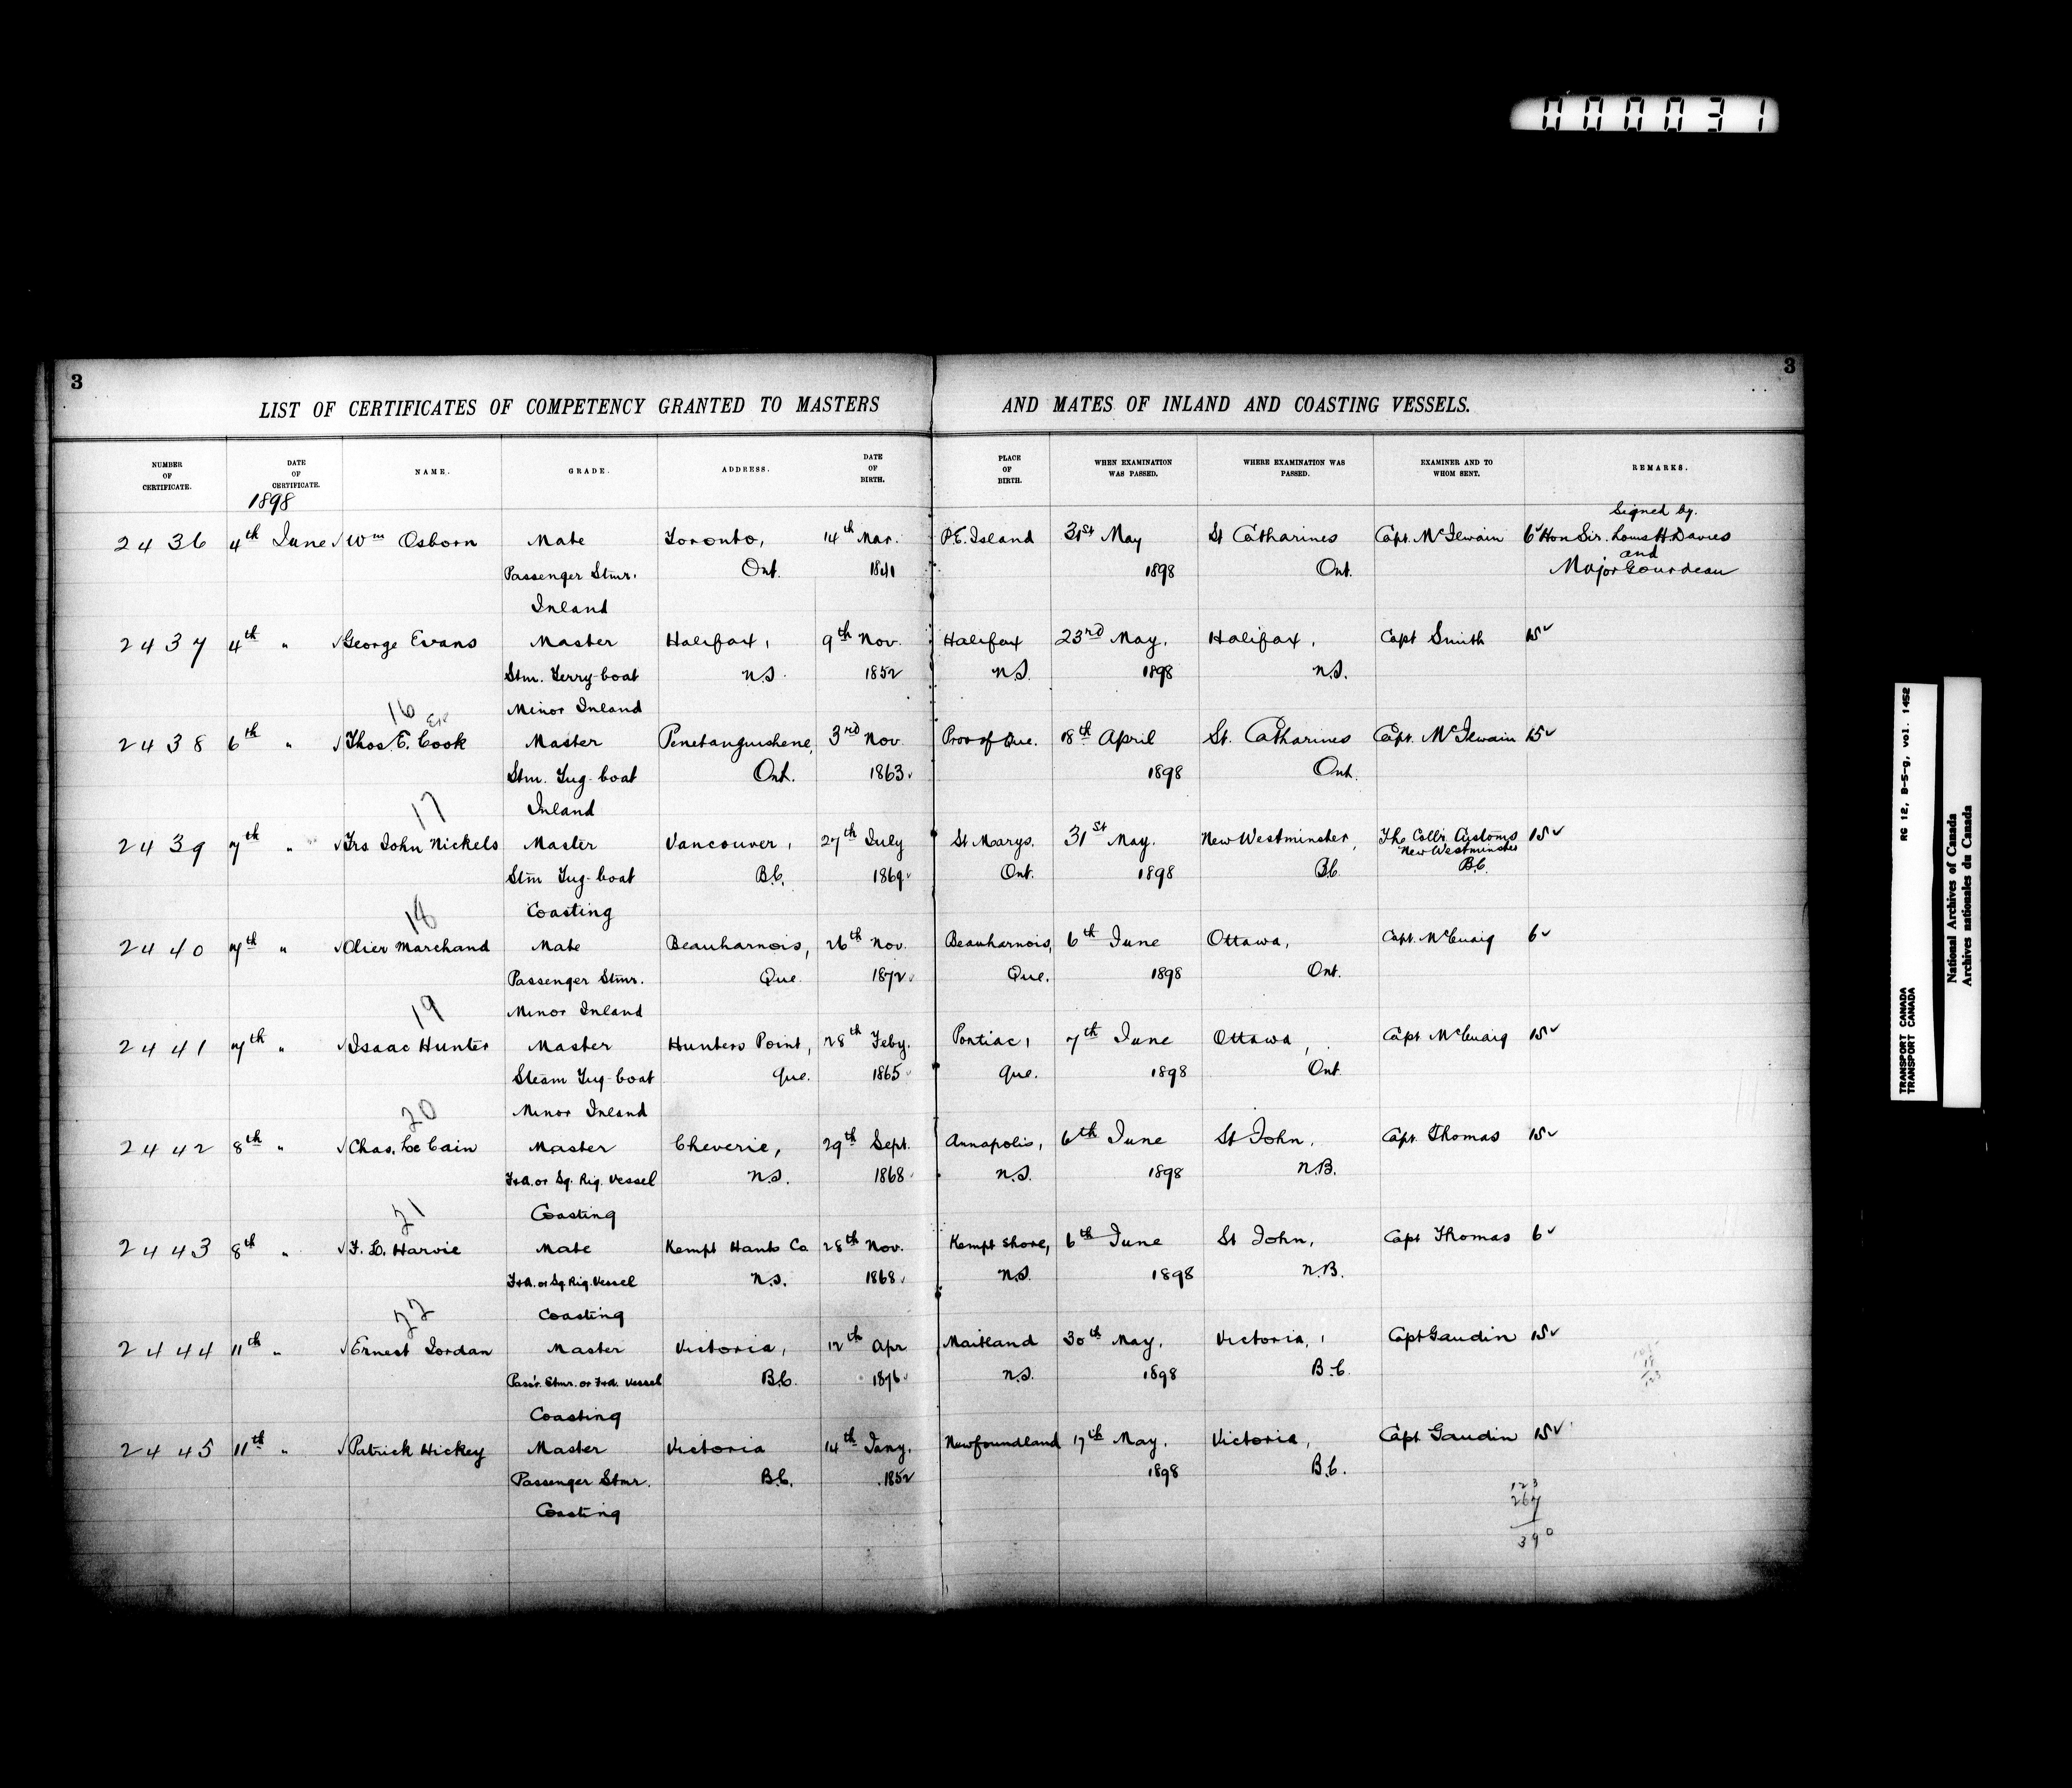 000031
3
3
LIST OF CERTIFICATES OF COMPETENCY GRANTED TO MASTERS AND MATES OF INLAND AND COASTING VESSELS.
NUMBER OF CERTIFICATE. DATE OF CERTIFICATE. NAME. GRADE. ADDRESS. DATE OF BIRTH. PLACE OF BIRTH. WHEN EXAMINATION WAS PASSED. WHERE EXAMINATION WAS PASSED. EXAMINER AND TO WHOM SENT. REMARKS.
1898
Signed by.
2436 4th June √ Wm Osborn Mate Toronto, 14th Mar. P.E. Island 31st May St Catharines Capt. McIlwain 6√ Hon Sir. Louis H Davies
and
Passenger Stmr. Ont. 1841 1898 Ont. Major Gourdeau
Inland
2437 4th " √ George Evans Master Halifax, 9th Nov. Halifax 23rd May, Halifax, Capt Smith 15√
Stm. Ferry-boat N.S. 1852 N.S. 1898 N.S.
16 Minor Inland
2438 6th " √ Thos. E. Cook Master Penetanguishene, 3rd Nov. Prov of Que. 18th April St. Catharines Capt. McIlwain 15√
Stm. Tug-boat Ont. 1863 1898 Ont.
17 Inland
2439 7th " √ Frs John Nickels Master Vancouver, 27th July St Marys. 31st May. New Westminster, The Collr. Customs 15√
New Westminster
Stm Tug-boat B.C. 1869 Ont. 1898 B.C. B.C.
18 Coasting
2440 7th " √ Olier Marchand Mate Beauharnois, 26th Nov. Beauharnois, 6th June Ottawa, Capt. McCuaig 6√
Passenger Stmr. Que. 1872 Que. 1898 Ont.
19 Minor Inland
2441 7th " √ Isaac Hunter Master Hunters Point, 28th Feby. Pontiac, 7th June Ottawa, Capt McCuaig 15√
Steam Tug-boat Que. 1865 Que. 1898 Ont
20 Minor Inland
2442 8th " √ Chas. Le Cain Master Cheverie, 29th Sept. Annapolis, 6th June St John, Capt. Thomas 15√
F&A. or Sq. Rig. Vessel N.S. 1868 N.S. 1898 N.B.
21 Coasting
2443 8th " √ F. L. Harvie Mate Kempt Hants Co 28th Nov. Kempt Shore, 6th June St John, Capt Thomas 6√
F&A. or Sq. Rig. Vessel N.S. 1868 N.S. 1898 N.B.
22 Coasting
2444 11th " √ Ernest Jordan Master Victoria, 12th Apr Maitland 30th May, Victoria, Capt Gaudin 15√
Pass'r. Stmr. or F&A. Vessel B.C. 1876 N.S. 1898 B.C.
Coasting
2445 11th " √ Patrick Hickey Master Victoria 14th Jany. Newfoundland 17th May, Victoria, Capt Gaudin 15√
Passenger Stmr. B.C. 1852 1898 B.C.
Coasting
123
267
390
TRANSPORT CANADA RG 12, B-5-g, vol. 1452
TRANSPORT CANADA
National Archives of Canada
Archives nationales du Canada